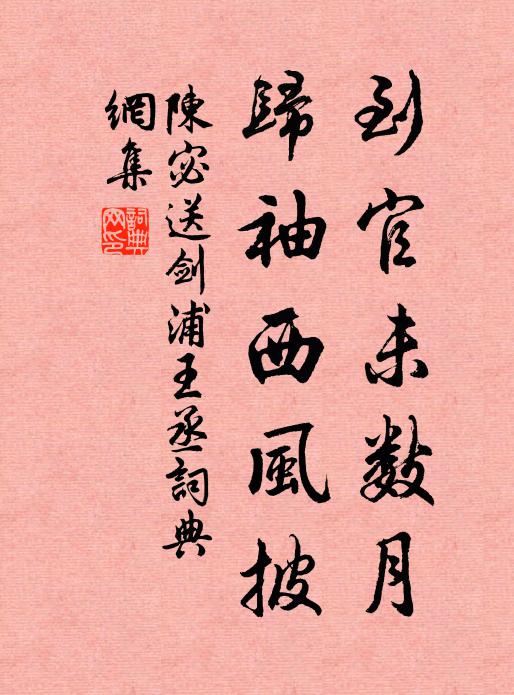 到官未數月
歸袖西風披
陳宓送劍浦王丞詞典
網集
詞典網印